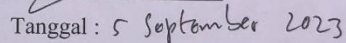 Tanggal : 5 September 2023